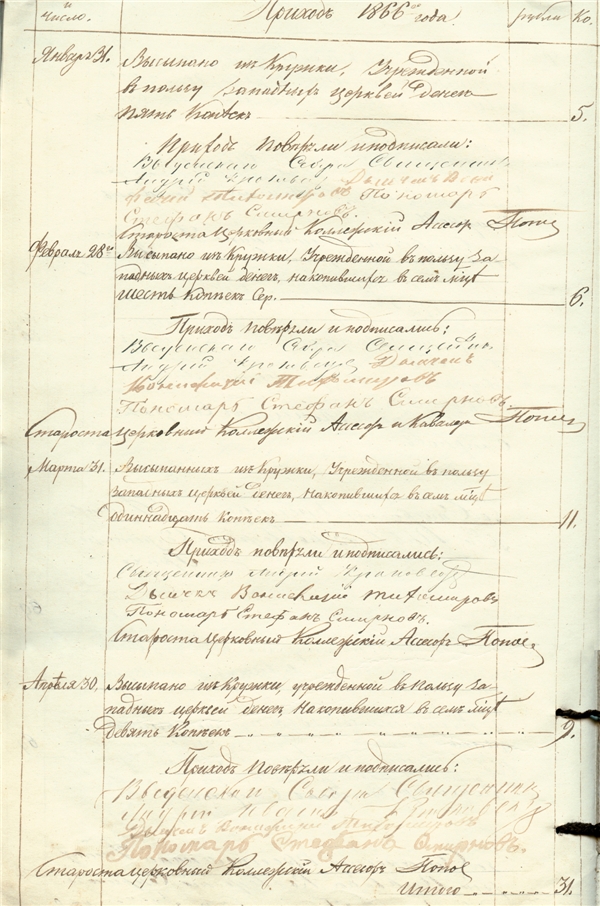 и число. Приходъ 1866го года. рубли Ко.
Январ 31. Высыпано изъ Кружки, Учрежденной
въ пользу западныхъ церквей денегъ
пять Копѣекъ 5.
Приходъ повѣряли и подписали:
Священникъ
Андрей
Пономарь
Стефанъ Смирновъ.
Староста Церковный Коллежскій Асесор Попов
Февраля 28го Высыпано изъ Кружки, Учрежденной въ пользу за-
падныхъ церквей денегъ, накопившихся въ семъ мцѣ
шесть Копѣекъ Сер. 6.
Приходъ повѣряли и подписались:
Андрей Дьячекъ
Пономарь Стефанъ Смирновъ
Староста Церковный Коллежскій Асесор и Кавалер Попов
Марта 31. Высыпанныхъ изъ Кружки, Учрежденной въ пользу
западныхъ церквей денегъ, накопившихся въ семъ мцѣ
одиннадцать Копѣекъ 11.
Приходъ повѣряли и подписались:
Священникъ Андрей
Дьячекъ Тихомировъ
Пономарь Стефанъ Смирновъ.
Староста Церковный Коллежскій Асесоръ Попов
Апрѣля 30. Высыпано изъ Кружки, учрежденной въ пользу за-
падныхъ церквей денегъ, накопившихся въ семъ мцѣ
Девять Копѣекъ 9.
Приходъ повѣряли и подписались:
Введенскаго Собора Священникъ
Андрей
Дьячекъ Тихомировъ
Пономарь Стефанъ Смирновъ.
Староста Церковный Коллежскій Асесоръ Попов
Итого 31.